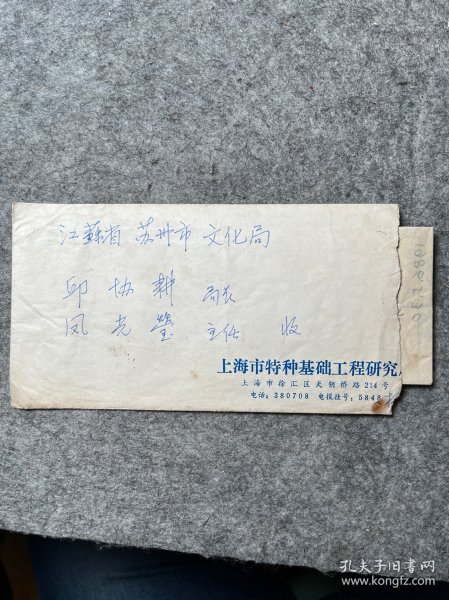 江蘇省 苏州市 文化局
邱协耕 局长
凤光莹 主任 收
上海市特种基础工程研究
上海市徐汇区天钥桥路214号
电话：380708 电报挂号：5843
孔夫子旧书网
www.kongfz.com